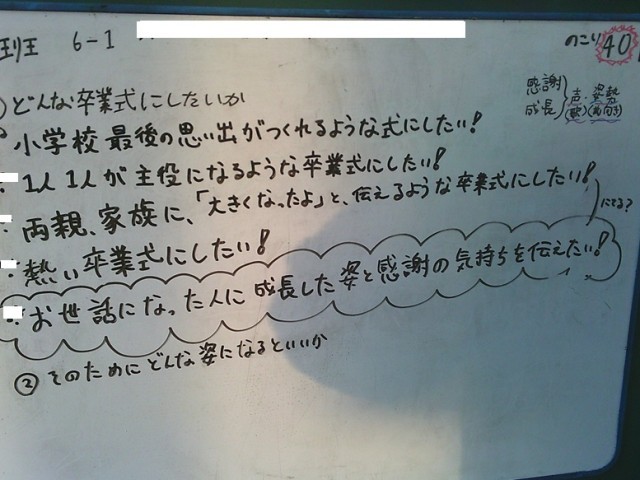 班 6-1
のこり 40
感謝
成長
声 姿勢
(歌) (前向き)
どんな卒業式にしたいか
小学校最後の思い出がつくれるような式にしたい!
1人1人が主役になるような卒業式にしたい!
・両親、家族に、「大きくなったよ」と、伝えるような卒業式にしたい!
にてる?
熱い卒業式にしたい!
お世話になった人に成長した姿と感謝の気持ちを伝えたい!
② そのためにどんな姿になるといいか